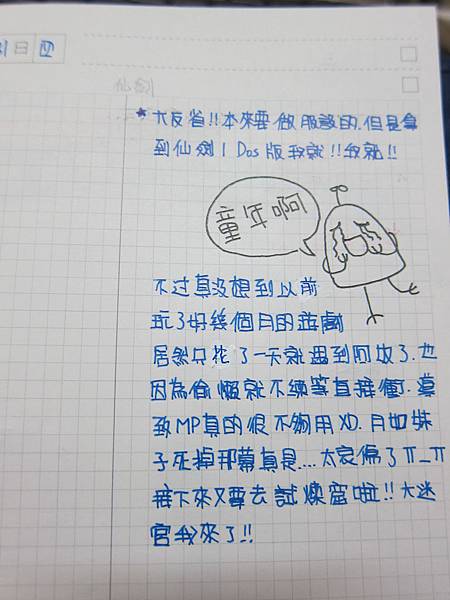 日 四
仙劍
★大反省!!本來要做服設的.但是拿
到仙劍1 Dos版我就!!我就!!
童年啊
不过真沒想到以前
玩了好幾個月的遊戲
居然只花了一天就遇到阿奴了.也
因為偷懶就不練等直接衝.導
致MP真的很不夠用XD.月如妹
子死掉那幕真是...太哀傷了π_π
接下來又要去試煉窟啦!!大迷
宮我來了!!